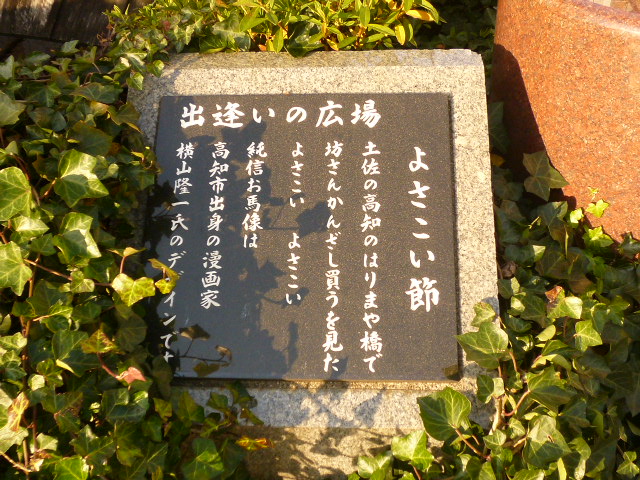 出逢いの広場
よさこい節
土佐の高知のはりまや橋で
坊さんかんざし買うを見た
よさこい よさこい
純信お馬像は
高知市出身の漫画家
横山隆一氏のデザインで